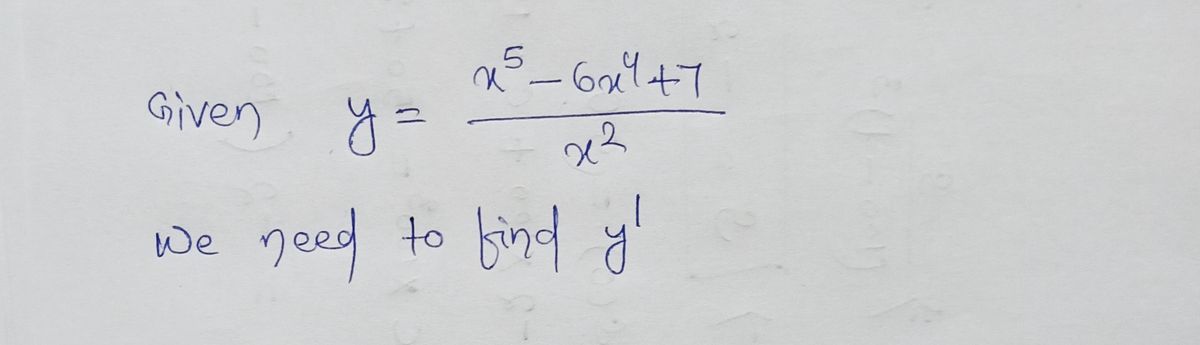 Given y = \frac{x^5 - 6x^4 + 7}{x^2}
We need to find y'